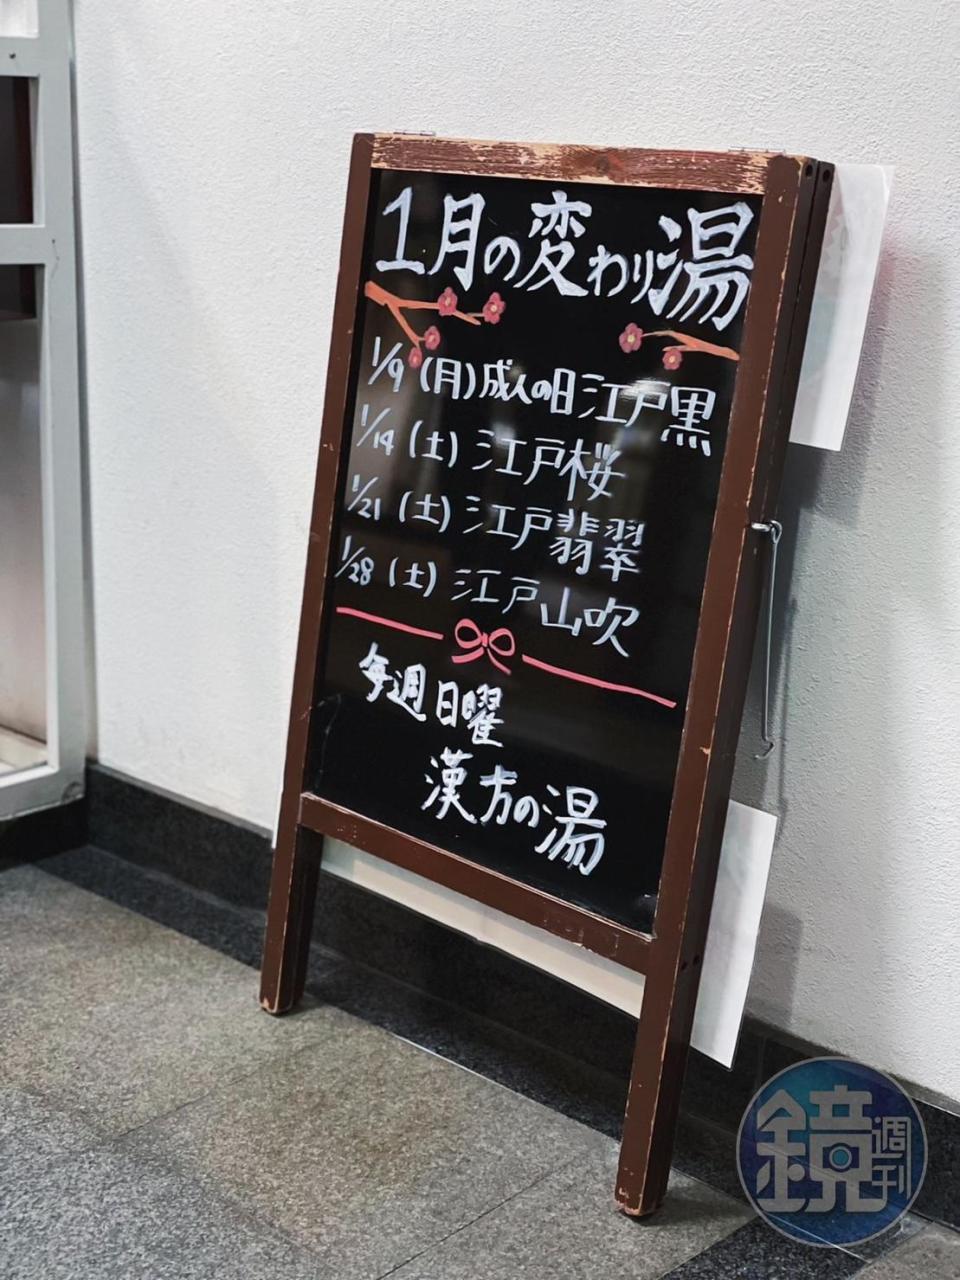 1月の変わり湯
1/9 (月) 成人の日 江戸黒
1/14 (土) 江戸桜
1/21 (土) 江戸翡翠
1/28 (土) 江戸山吹
毎週日曜
漢方の湯
鏡週刊